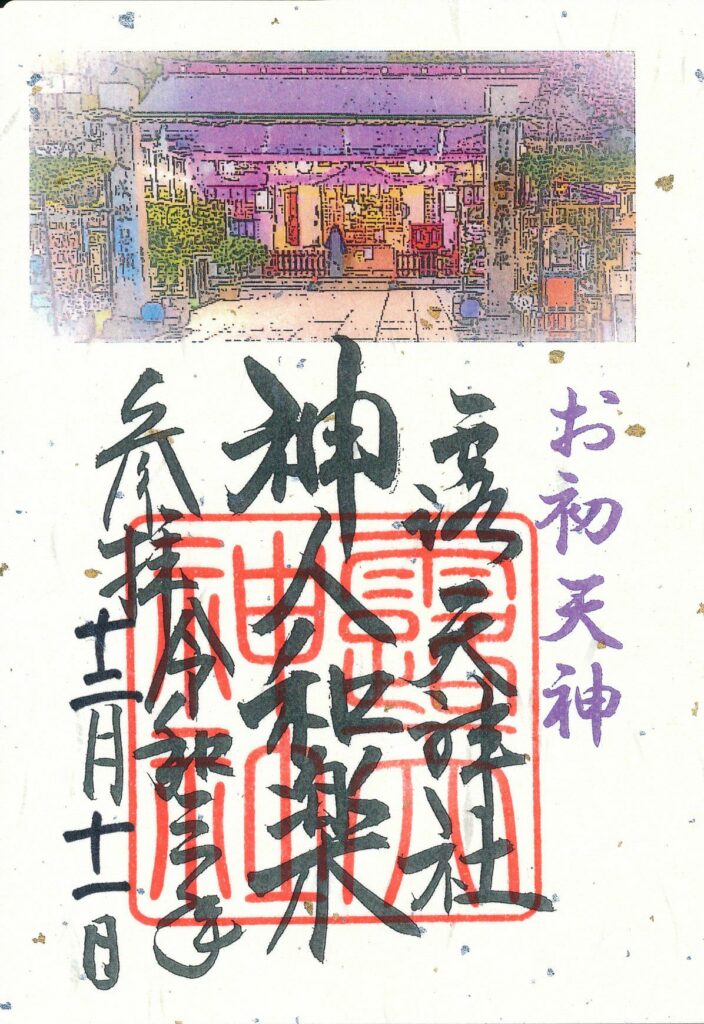 お初天神
露天神社
神人和楽
参拝 令和三年
十二月十一日